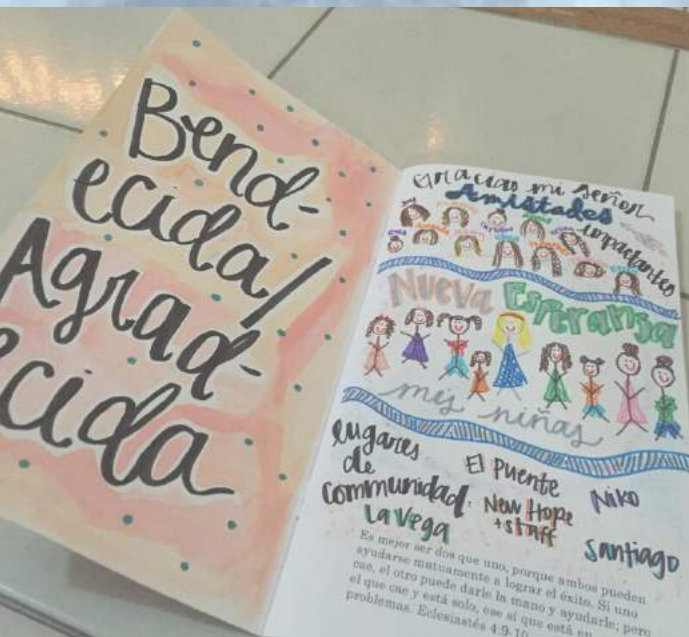 Bend-
ecida/
Agrad-
ecida
Gracias mi Señor
Amistades
impactantes
Nueva Esperanza
mis niñas
lugares
de
communidad:
La Vega
El Puente
New Hope
+ staff
Niko
Santiago
Es mejor ser dos que uno, porque ambos pueden
ayudarse mutuamente a lograr el éxito. Si uno
cae, el otro puede darle la mano y ayudarle; pero
el que cae y está solo, ese sí que está en
problemas. Eclesiastés 4:9-10